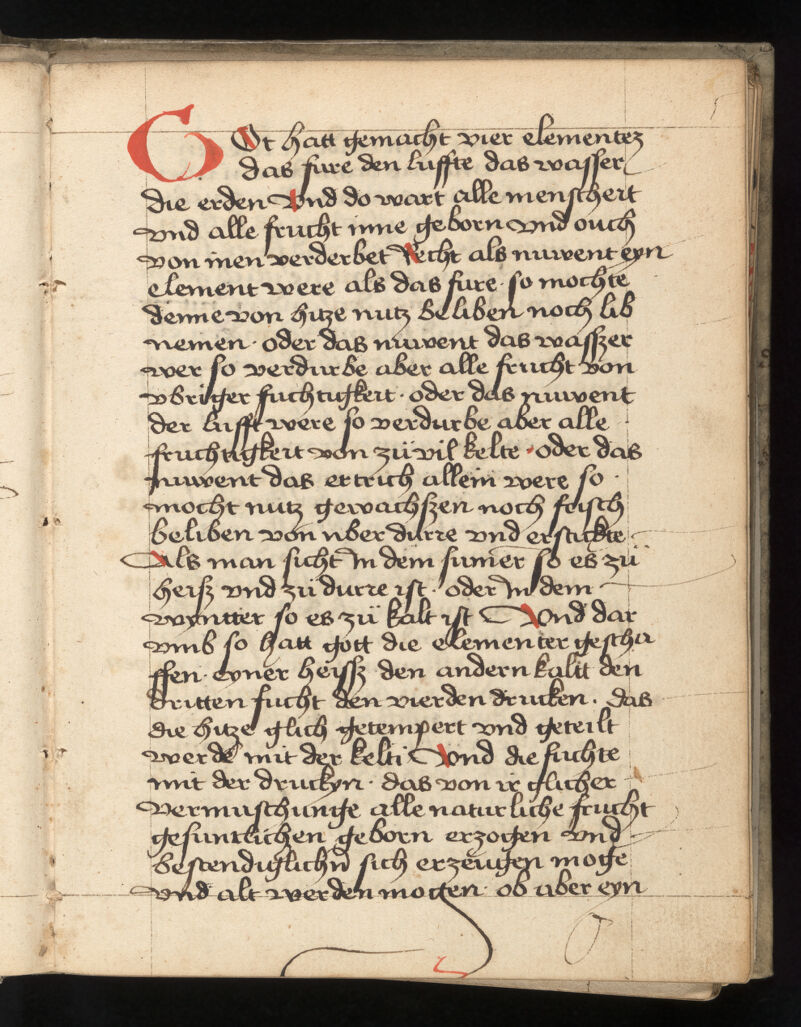 GOt hatt gemacht vier elementez
das fure den luffte das wasser
die erden Vnd do wart alle menscheit
vnd alle frucht inne geborn vnd ouch
von inen verderbet Recht als nuwent eyn
element were als das fure · so mochte
denne von hitze nutz beliben noch lib
nemen · oder das nuwent das wasszer
wer so verdurbe aber alle frucht von
vbriger fuchtigkeit · oder das nuwent
der lufft were so verdurbe aber alle
fruchtigkeit von zü vil kelte · oder das
nuwent das ertrich allein were so
mocht nutz gewachszen noch frisch
beliben von uber durre vnd erstickte
Als man sicht In dem sumer so es zü
heisz vnd zü durre ist · oder In dem
wyntter so es zü kalt ist Vnd dar
vmb so hatt gott die elementer gescha
ffen · eyner heissz den andern kaltt den
dritten fucht den vierden drucken · das
die hitze glich getempert vnd geteilt
werde mit der kelti Vnd die fuchte
mit der druckyn · das von ir glicher
vermuschunge alle naturliche frucht
gesuntlichen geborn erzogen vnd
bestendiglichn̄ sich erzeugen moge
vnd alt werden mogen · ob aber eyn